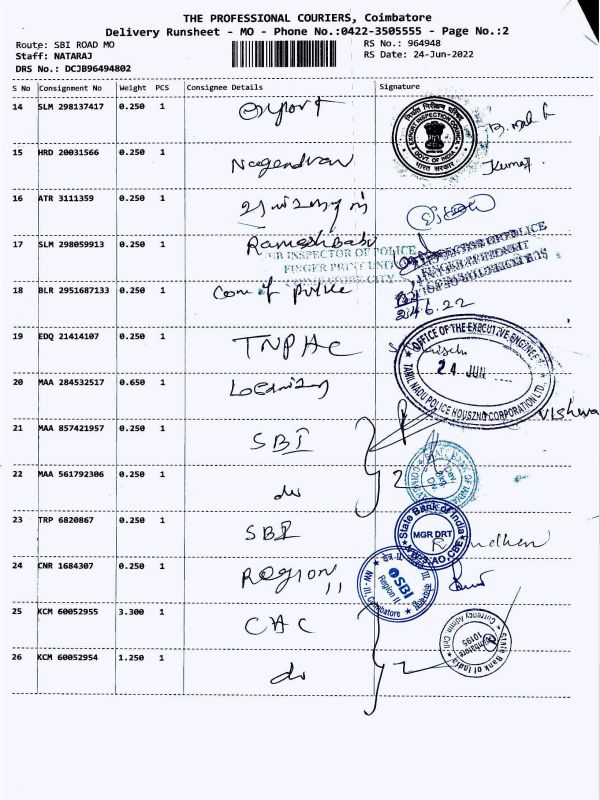 THE PROFESSIONAL COURIERS, Coimbatore
Delivery Runsheet - MO - Phone No.:0422-3505555 - Page No.:2
Route: SBI ROAD MO
RS No.: 964948
Staff: NATARAJ
RS Date: 24-Jun-2022
DRS No.: DCJB96494802
S No Consignment No Weight PCS Consignee Details Signature
14 SLM 298137417 0.250 1 Export
EXPORT INSPECTION COUNCIL
GOVT OF INDIA
भारत सरकार
15 HRD 20031566 0.250 1 Nagendran Kumar.
16 ATR 3111359 0.250 1
17 SLM 298059913 0.250 1 Ramesh Babu
SUB INSPECTOR OF POLICE
FINGER PRINT UNIT
18 BLR 2951687133 0.250 1 Com of police
24.6.22
19 EDQ 21414107 0.250 1 TNPHC
OFFICE OF THE EXECUTIVE ENGINEER
24 JUN
TAMIL NADU POLICE HOUSING CORPORATION LTD.
20 MAA 284532517 0.650 1
Vishwa
21 MAA 857421957 0.250 1 SBI
22 MAA 561792306 0.250 1 do 2
STATE BANK OF INDIA
23 TRP 6820867 0.250 1 SBI
State Bank of India
MGR DRT
24 CNR 1684307 0.250 1 Region II
SBI
Region II
NW - III, Coimbatore
25 KCM 60052955 3.300 1 CAC
26 KCM 60052954 1.250 1 do 2
State Bank of India
Currency Admn. Cell
Coimbatore
10195